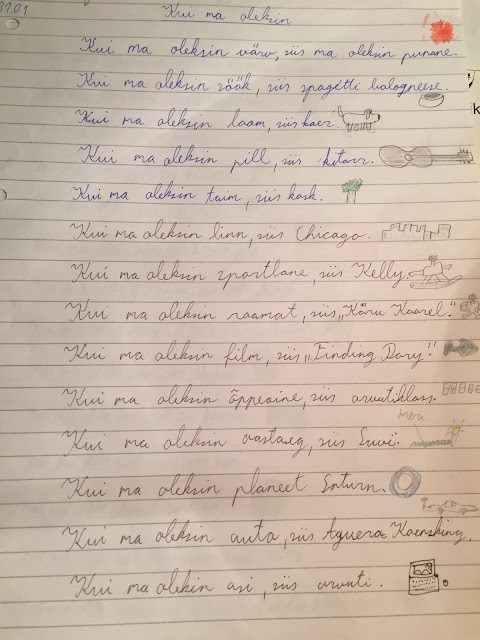 31.01
Kui ma oleksin
Kui ma oleksin värv, siis ma oleksin punane.
Kui ma oleksin söök, siis spagetti bologneese.
Kui ma oleksin loom, siis koer.
k
Kui ma oleksin pill, siis kitarr.
Kui ma oleksin taim, siis kask.
Kui ma oleksin linn, siis Chicago.
Kui ma oleksin sportlane, siis Kelly.
Kui ma oleksin raamat, siis „Käru Kaarel."
Kui ma oleksin film, siis „Finding Dory".
Kui ma oleksin õppeaine, siis arvutiklass.
meri
Kui ma oleksin aastaeg, siis Suvi.
Kui ma oleksin planeet Saturn.
Kui ma oleksin auto, siis Aguera Koensking.
Kui ma olekin asi, siis arvuti.